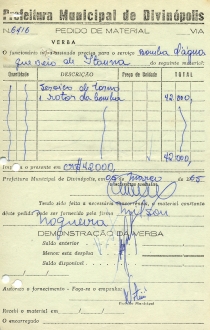 Prefeitura Municipal de Divinópolis
N.º 6416 PEDIDO DE MATERIAL VIA
VERBA
O funcionário infra-assinado precisa para o serviço bomba d'água
que veio de Itaúna do seguinte material:
Quantidade DESCRIÇÃO Preço da Unidade TOTAL
Serviço de torno
1 rotor da bomba 42.000,
42.000,
Importa o presente em CR$42.000,
Prefeitura Municipal de Divinópolis, 05 Março de 65
Tendo sido feita a necessária conferência, o material constante
deste pedido pode ser fornecido pela firma Milson
Nogueira
DEMONSTRAÇÃO DA VERBA
Saldo anterior
Menos: esta despêsa
Saldo disponível
Autorizo o fornecimento - Faça-se o empenho:
Prefeito Municipal
Recebi o material em
O encarregado